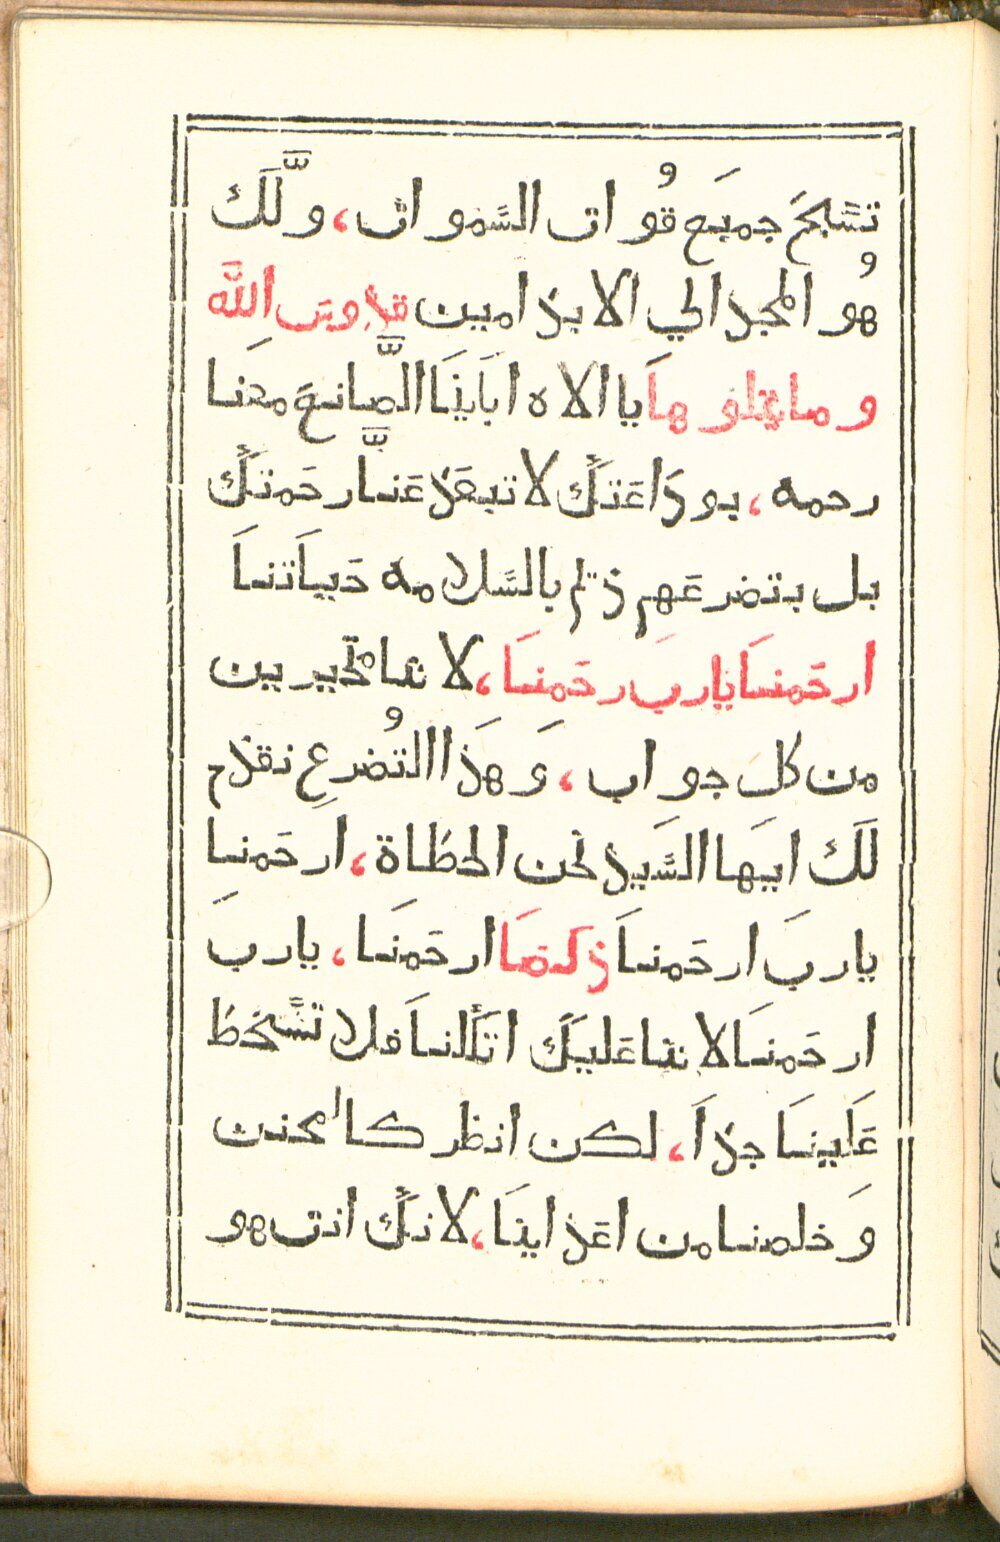 تسَّبحَ جميَع قُوات السَّموات، ولَّك
هُو المجد الي الابد امين قدوس الله
وما يتلوها يا الاه ابَاينَا الصَّانع معَنا
رحمه، بوداعَتكَّ لا تبعَد عَنَّا رحَمتكَّ
بل بتضرعَهم دبّر بالسَّلامه حَياتنَا
ارحَمنَا يارب رحَمنَا، لاننا متحيرين
من كلَ جواب، وَهذَا التُضرعِ نقدم
لَك ايهَا السَّيد نحن الخطاة، ارحَمنَا
ياربَ ارحَمنَا ذكصَا ارحَمنَا، ياربَ
ارحَمنَا لاننا عَليكَّ اتكَّلنَا فلا تسَّخط
عَلينَا جدَا، لكن انظر كالمحنن
وَخلصنا من اعَداينَا، لانكَّ انت هو